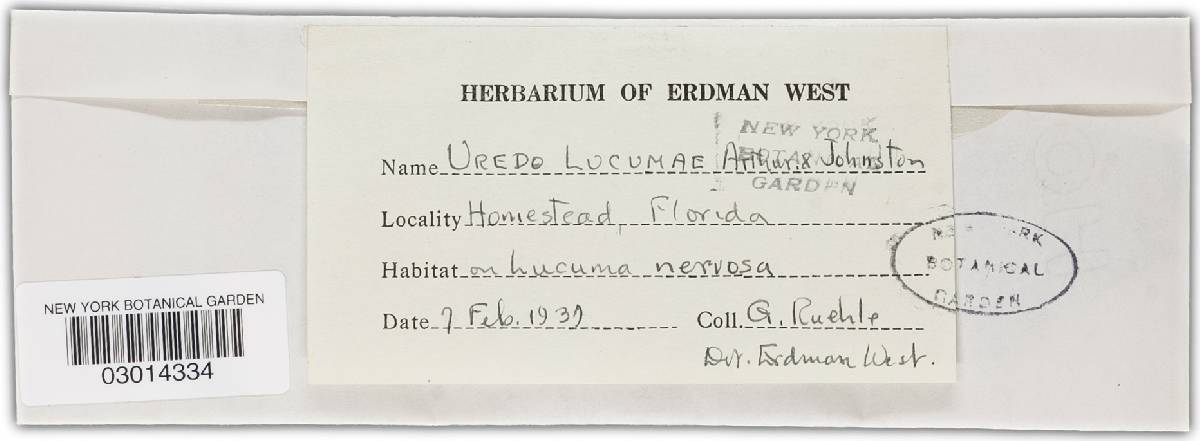 HERBARIUM OF ERDMAN WEST
NEW YORK
BOTANICAL
GARDEN
Name UREDO LUCUMAE Arthur & Johnston
Locality Homestead, Florida
Habitat on Lucuma nervosa
Date 7 Feb. 1937 Coll. G. Ruehle
Det. Erdman West.
NEW YORK
BOTANICAL
GARDEN
NEW YORK BOTANICAL GARDEN
03014334